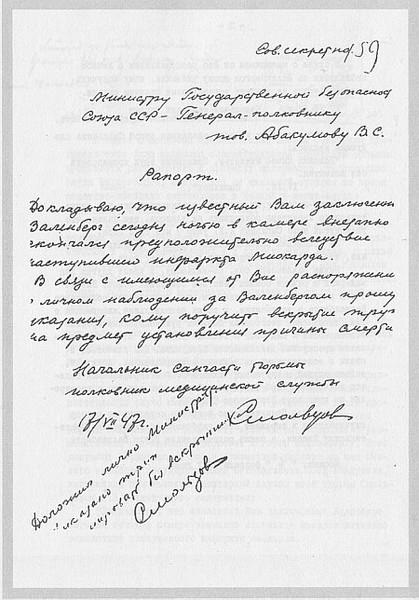 Сов. секретно. 59
Министру Государственной безопасно
Союза ССР – Генерал-полковнику
тов. Абакумову В.С.
Рапорт.
Докладываю, что известный Вам заключенн
Валенберг сегодня ночью в камере внезапно
скончался предположительно вследствие
наступившего инфаркта миокарда.
В связи с имеющимся от Вас распоряжени
о личном наблюдении за Валенбергом прошу
указания, кому поручить вскрытие труп
на предмет установления причины смерти
Начальник санчасти тюрьмы
полковник медицинской службы
17/VII 47г. Смольцов
Доложил лично министру
Приказано труп
кремировать без вскрытия
Смольцов